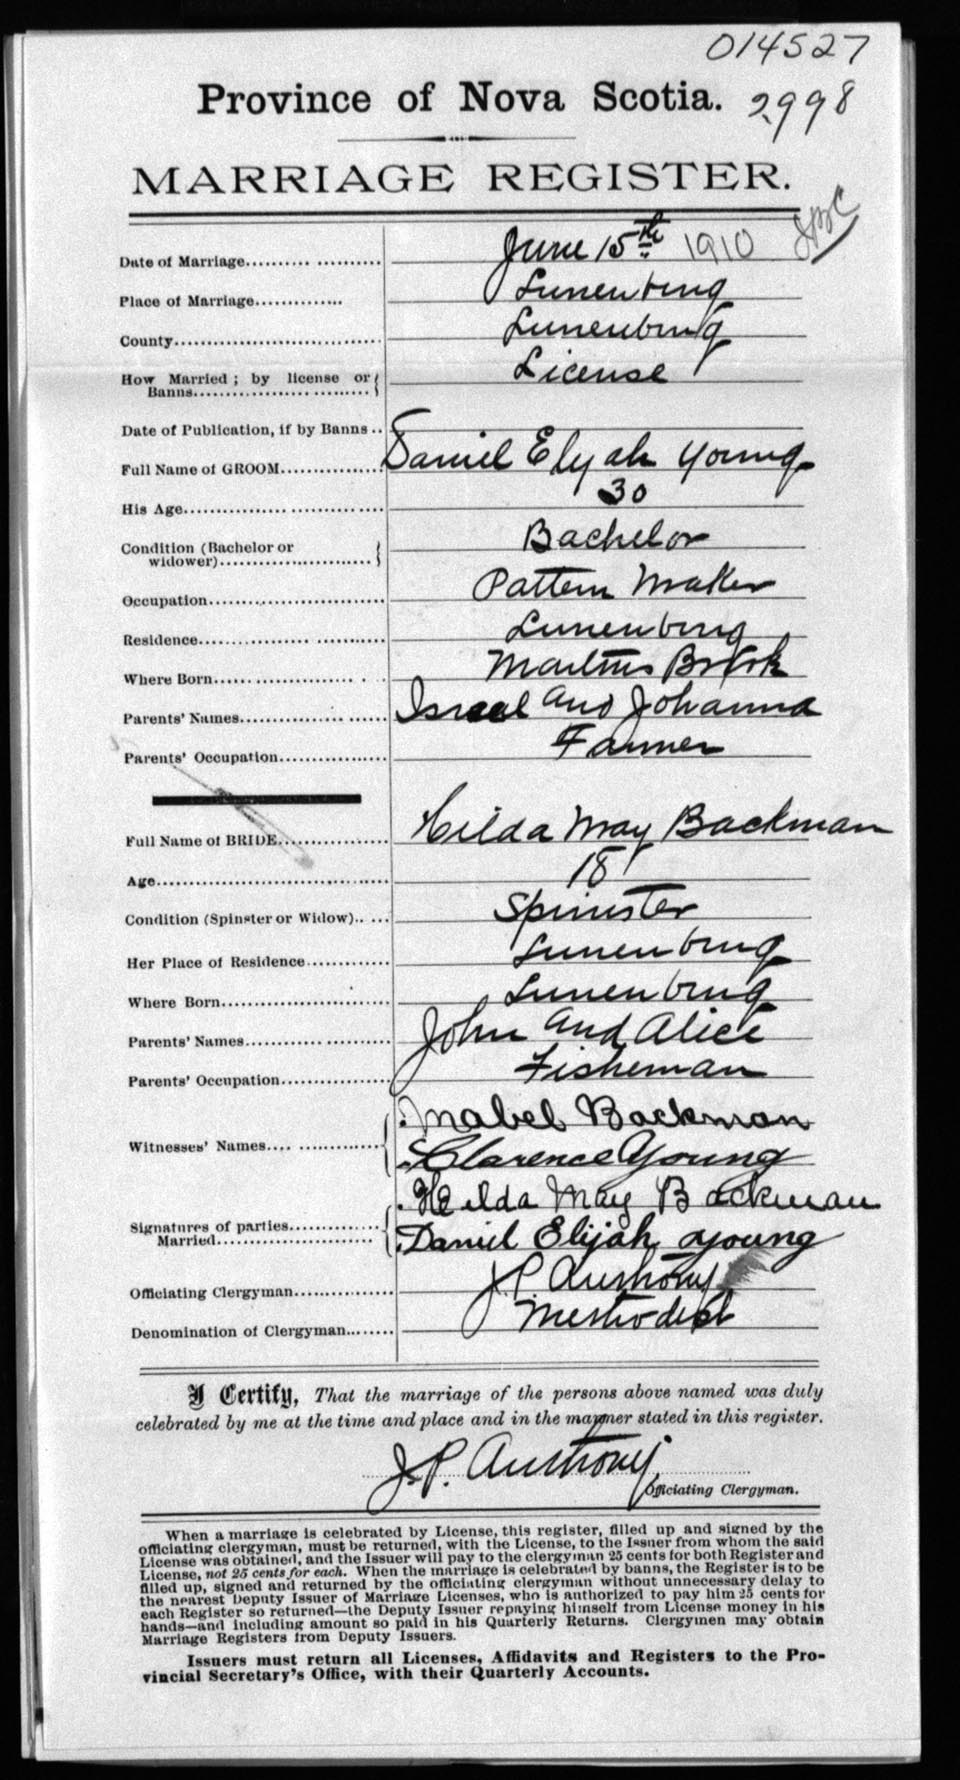 014527
Province of Nova Scotia. 2998
MARRIAGE REGISTER.
Date of Marriage.......... .......... June 15th 1910
Place of Marriage.............. Lunenburg
County................................ Lunenburg
How Married ; by license or License
Banns...............................
Date of Publication, if by Banns ..
Full Name of GROOM............... Daniel Elyah Young
His Age................................ 30
Condition (Bachelor or Bachelor
widower).......................
Occupation........................... Pattern Maker
Residence................ .......... Lunenburg
Where Born...................... Martins Brook
Parents' Names................ ...... Israel and Johanna
Parents' Occupation................. Farmer
Full Name of BRIDE................. Hilda May Backman
Age..................................... 18
Condition (Spinster or Widow).. ... Spinster
Her Place of Residence............. Lunenburg
Where Born.......................... Lunenburg
Parents' Names...................... John and Alice
Parents' Occupation................. Fisheman
Mabel Backman
Witnesses' Names.... .............. Clarence Young
Hilda May Backman
Signatures of parties...............
Married........................... Daniel Elijah Young
Officiating Clergyman............... J.P. Anthony
Denomination of Clergyman........ Methodist
I Certify, That the marriage of the persons above named was duly
celebrated by me at the time and place and in the manner stated in this register.
J.P. Anthony
Officiating Clergyman.
When a marriage is celebrated by License, this register, filled up and signed by the
officiating clergyman, must be returned, with the License, to the Issuer from whom the said
License was obtained, and the Issuer will pay to the clergyman 25 cents for both Register and
License, not 25 cents for each. When the marriage is celebrated by banns, the Register is to be
filled up, signed and returned by the officiating clergyman without unnecessary delay to
the nearest Deputy Issuer of Marriage Licenses, who is authorized to pay him 25 cents for
each Register so returned—the Deputy Issuer repaying himself from License money in his
hands—and including amount so paid in his Quarterly Returns. Clergymen may obtain
Marriage Registers from Deputy Issuers.
Issuers must return all Licenses, Affidavits and Registers to the Pro-
vincial Secretary's Office, with their Quarterly Accounts.